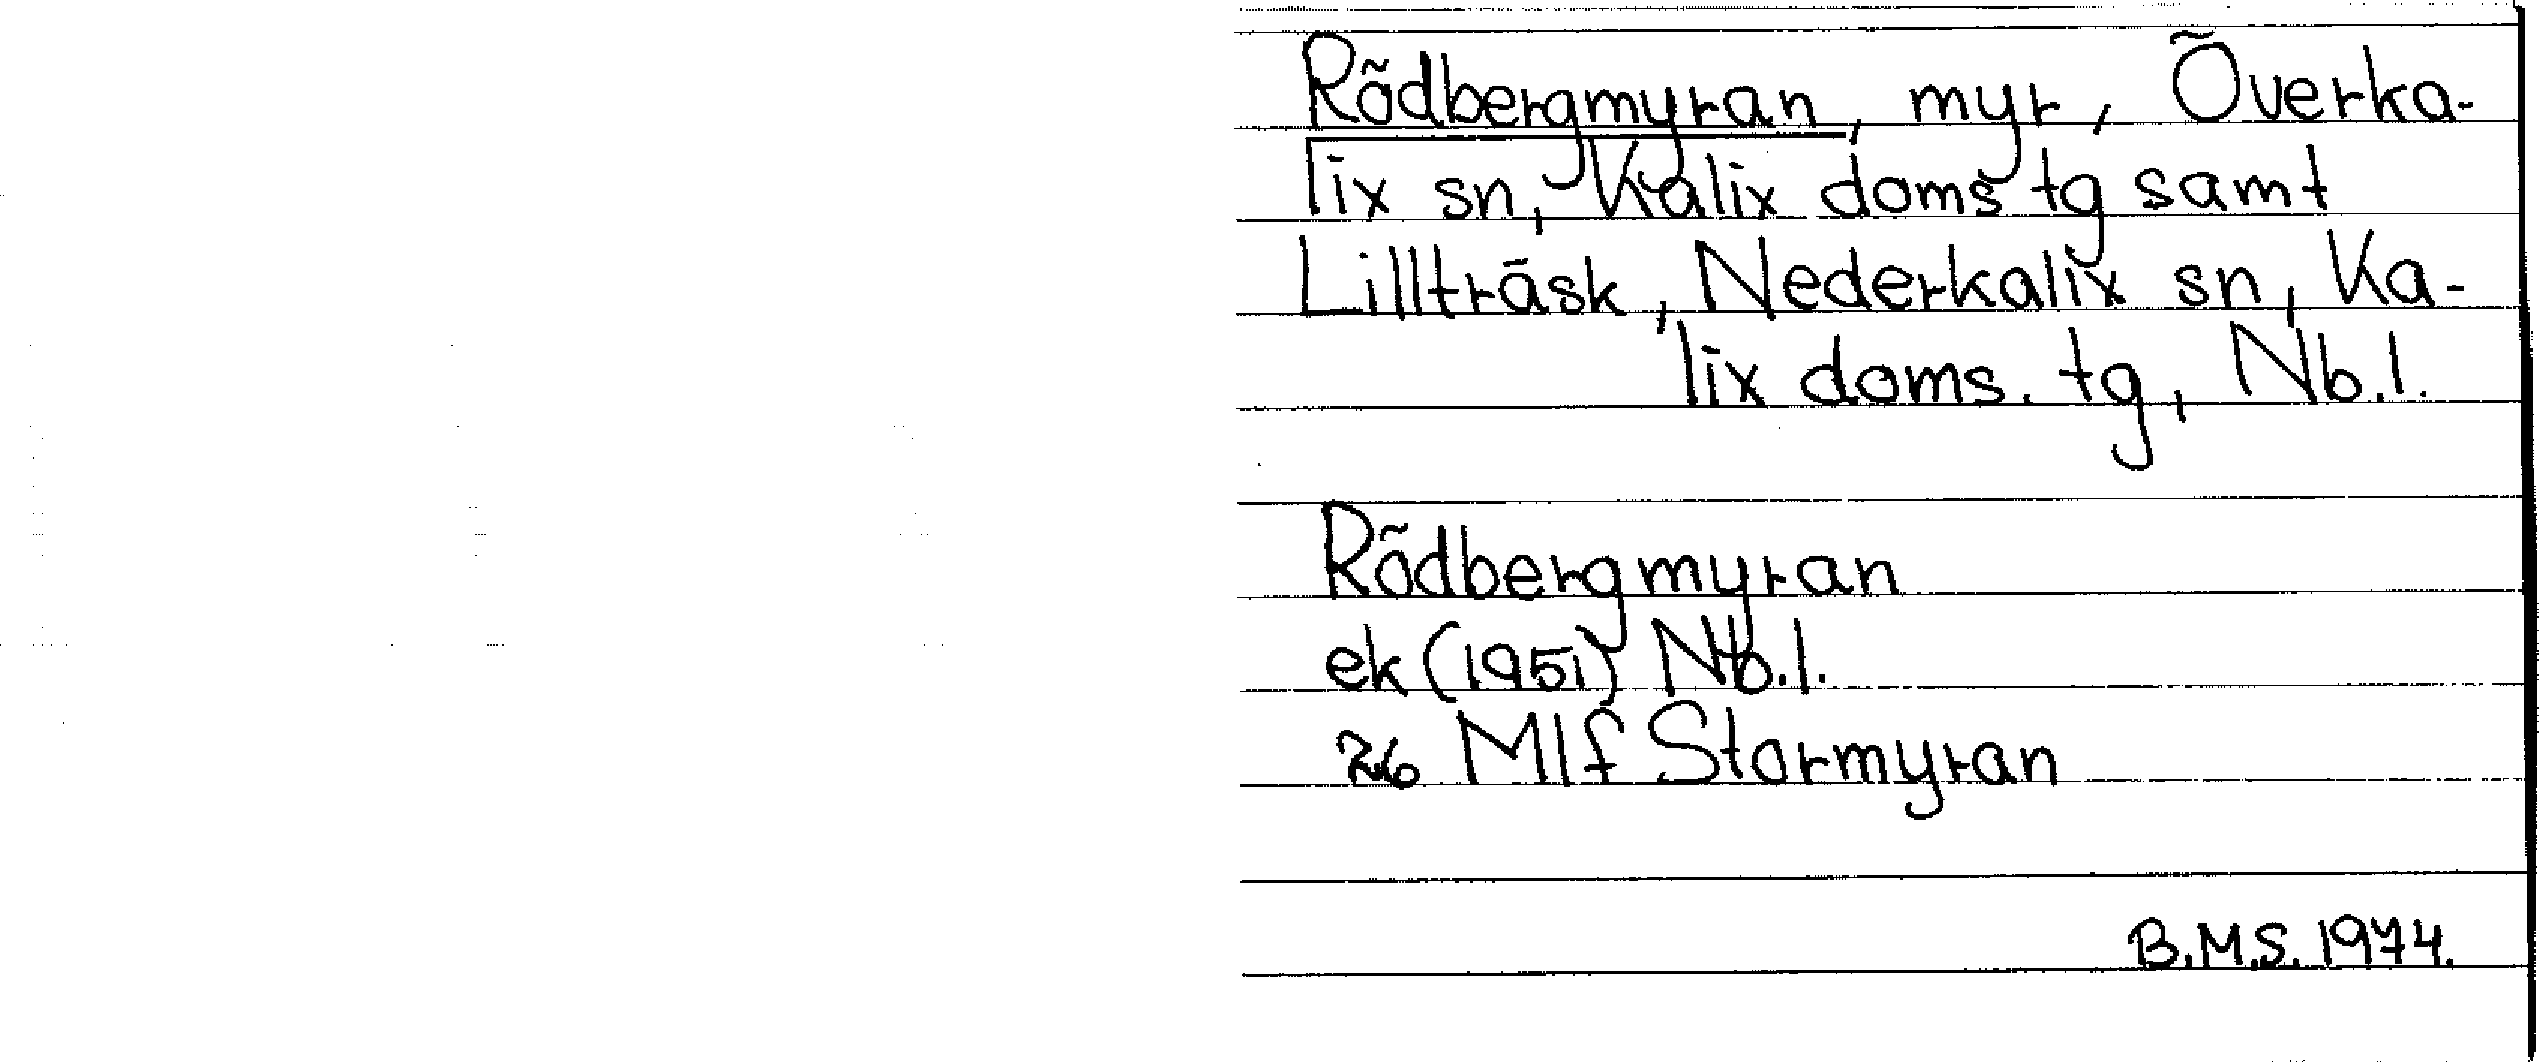 Rödbergmyran, myr, Överka-
lix sn, Kalix doms tg samt
Lillträsk, Nederkalix sn, Ka-
lix doms. tg, Nb.l.
Rödbergmyran
ek (1951) Nb.l.
26 Mlf Stormyran
B.M.S. 1974.